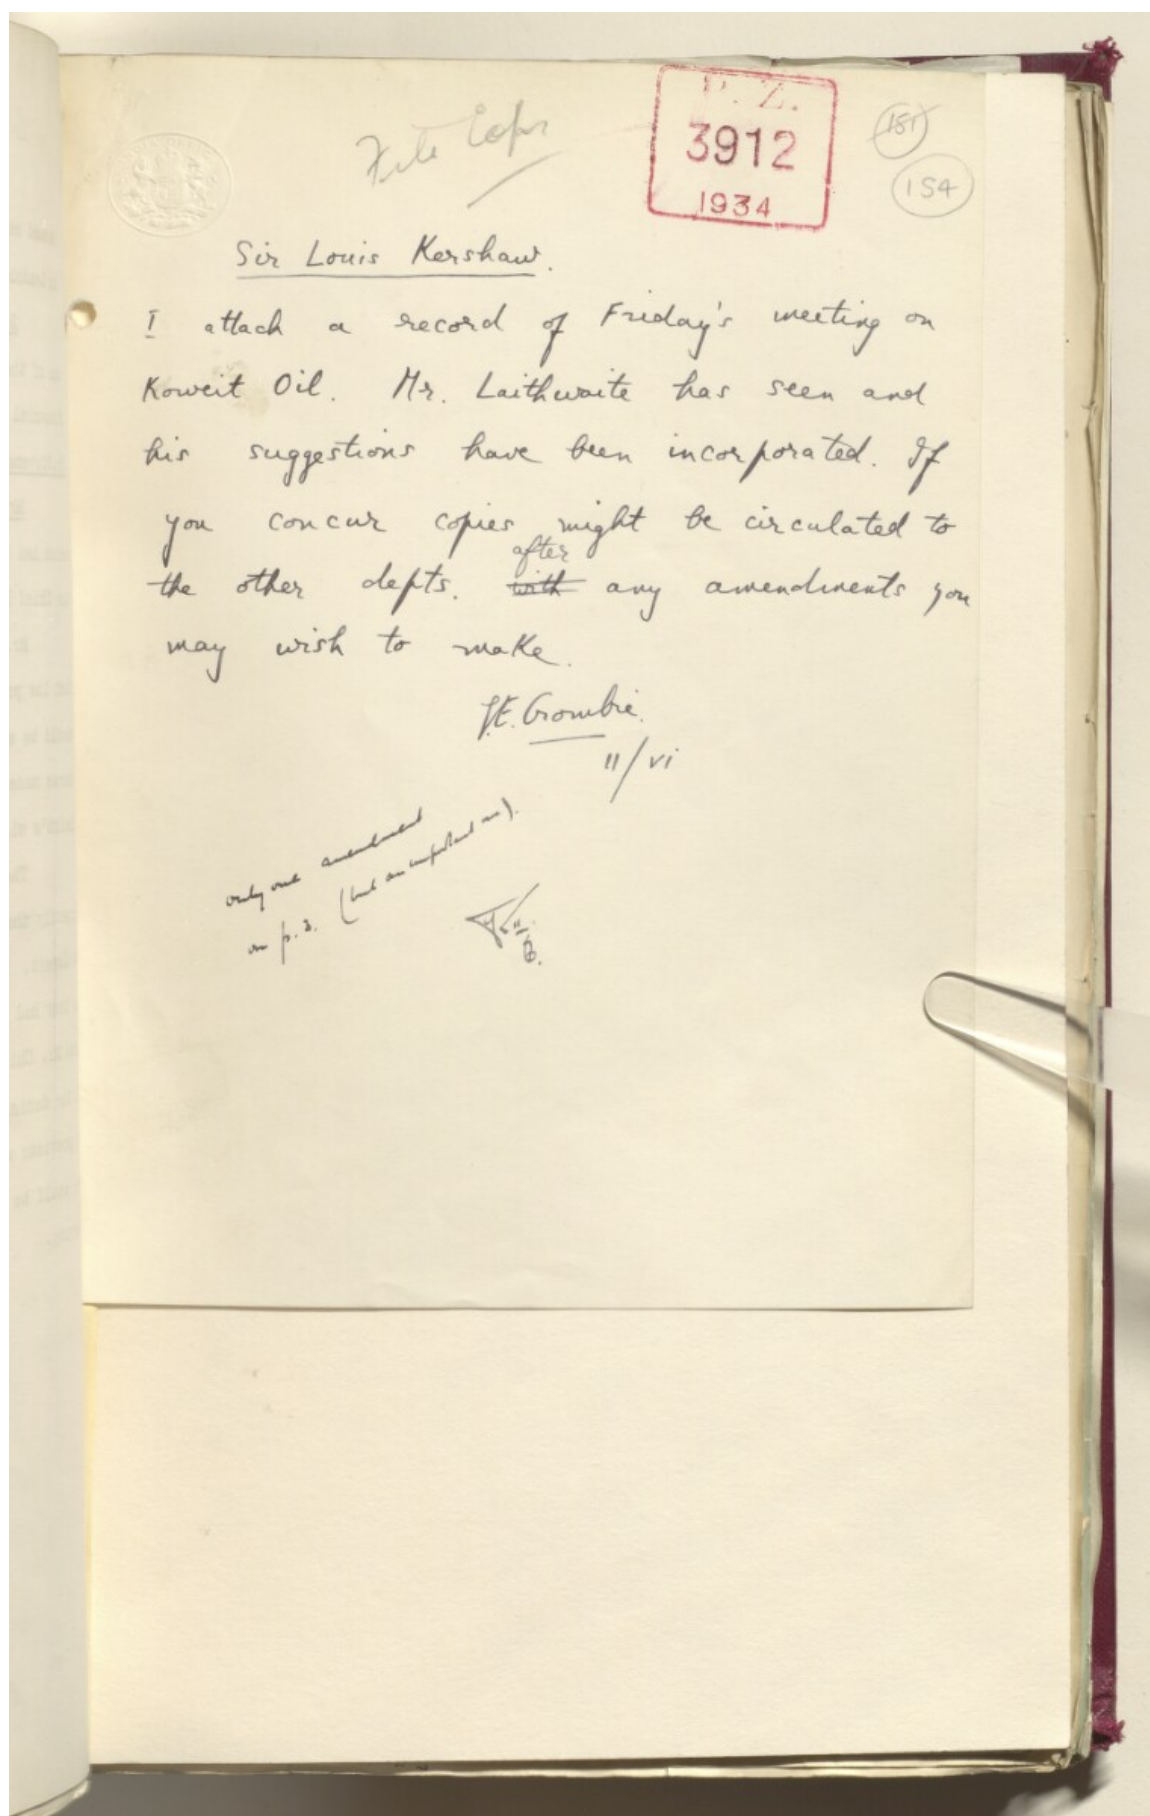 File Copy
P. Z.
3912
1934
151
154
Sir Louis Kershaw.
I attach a record of Friday's meeting on
Koweit Oil. Mr. Laithwaite has seen and
his suggestions have been incorporated. If
you concur copies might be circulated to
after
the other depts. with any amendments you
may wish to make.
J.E. Crombie.
11/vi
only one amendment
on p. 3. (but an important one).
11
6.